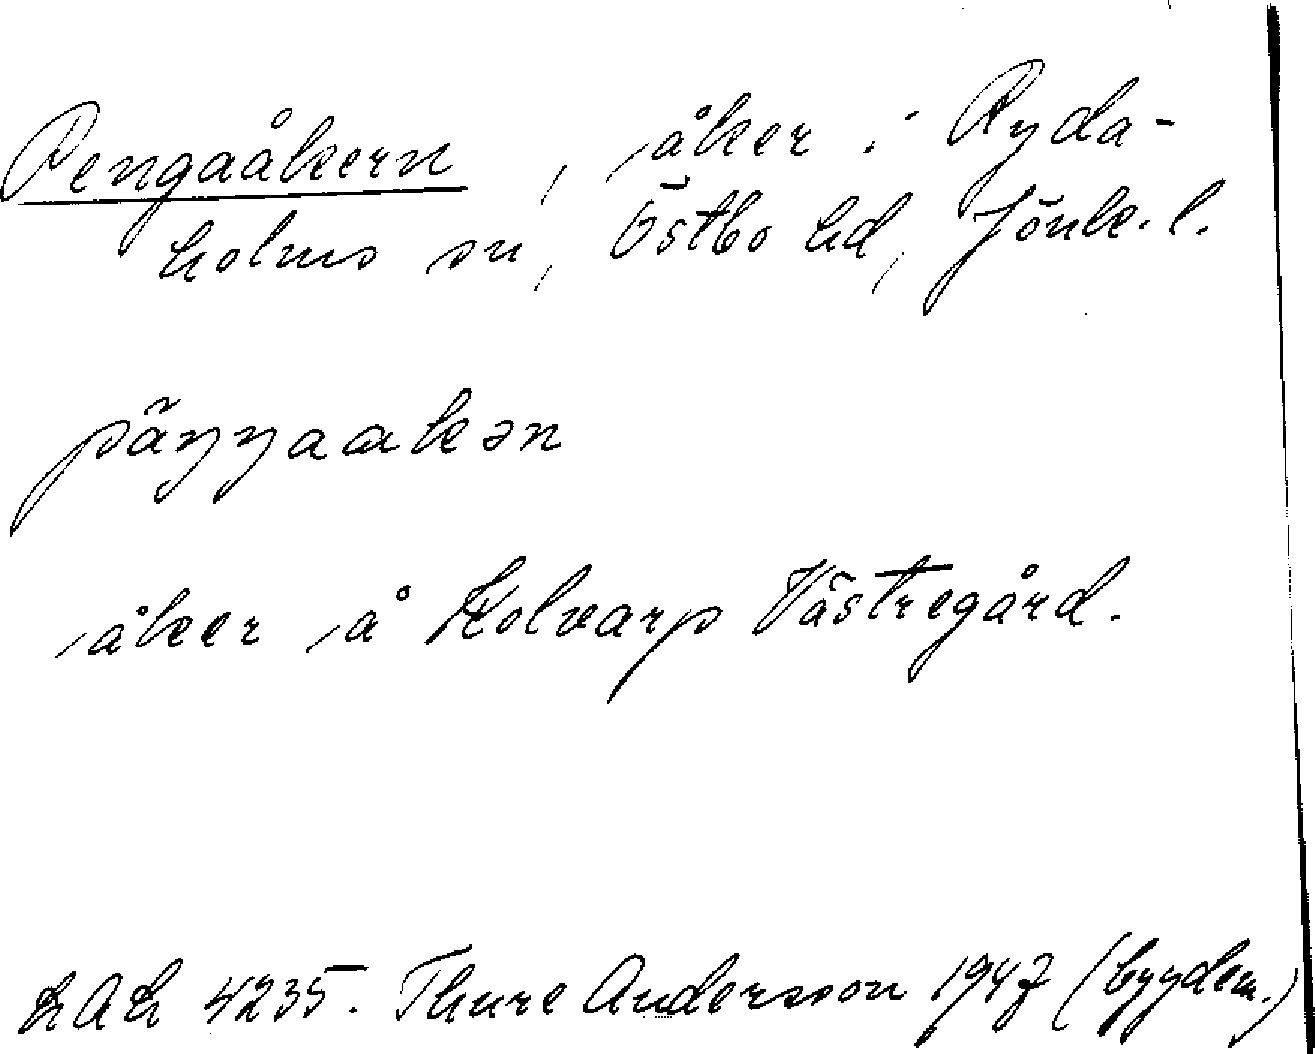 Pengaåkern, åker i Ryda-
holms sn, Östbo hd, Jönk. l.
päŋŋaakən
åker å Kolvarp Västregård.
LAL 4235. Thure Andersson 1947